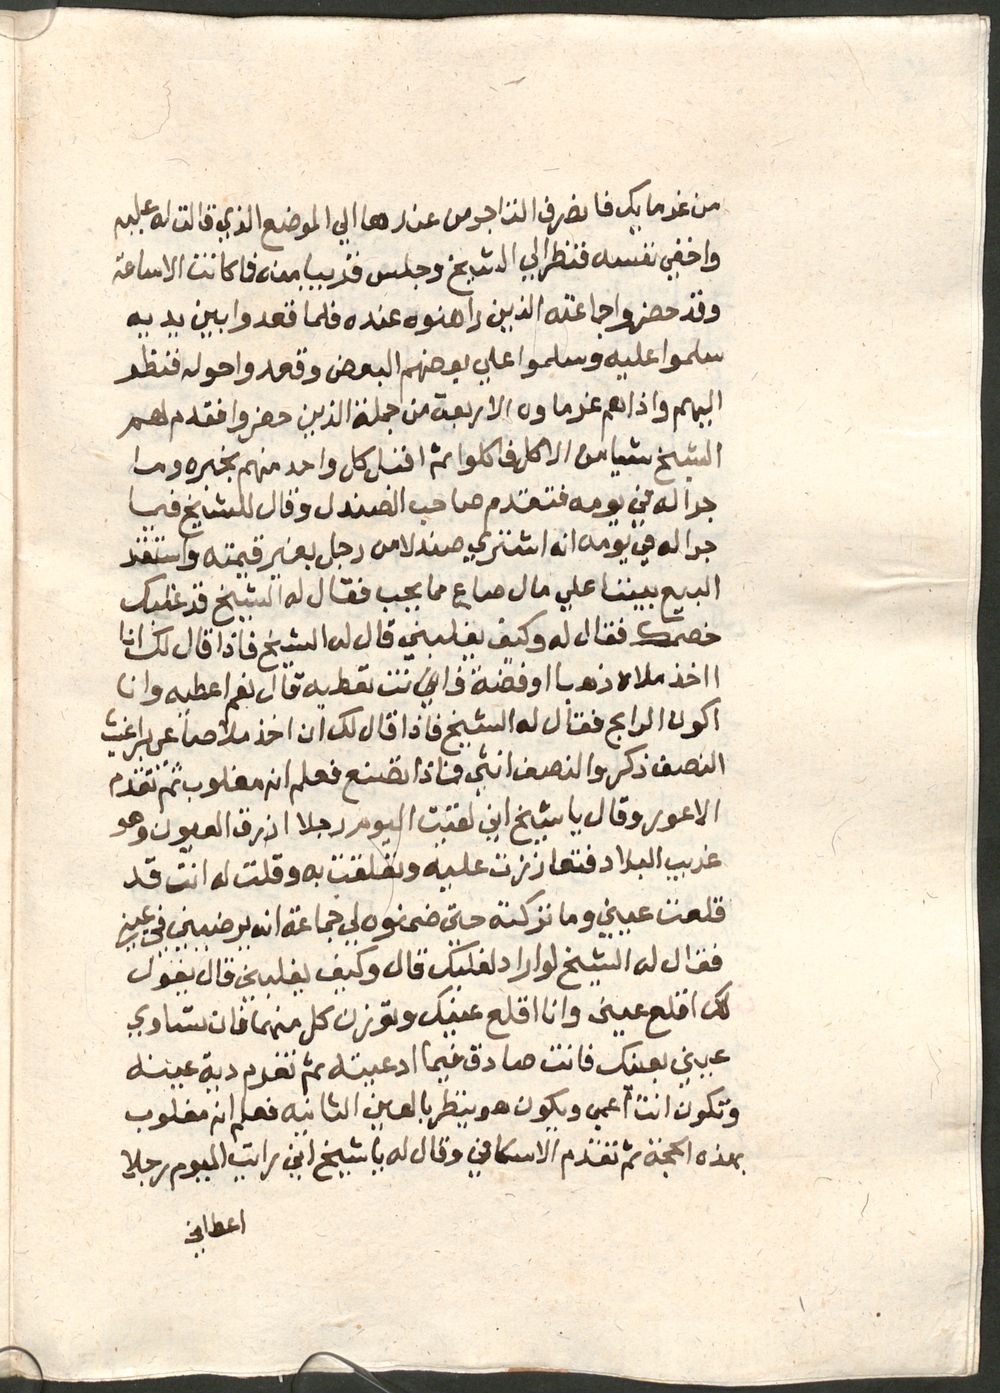 من غرمايك فانصرف التاجر من عندها الي الموضع الذي قالت له عليه
واخفي نفسه فنظر الي الشيخ وجلس قريبا منه فما كانت الا ساعة
وقد حضروا جماعته الذين راهنوه عنده فلما قعدوا بين يديه
سلموا عليه وسلموا علي بعضهم البعض وقعدوا حوله فنظر
اليهم واذا هم غرماوه الاربعة من جملة الذين حضروا فقدم لهم
الشيخ شيا من الاكل فاكلوا ثم اقبل كل واحد منهم يخبره وما
جرا له في يومه فتقدم صاحب الصندل وقال للشيخ فيما
جرا له في يومه انه اشتري صندلا من رجل بغير قيمته واستقر
البيع بيننا علي مال صاع مما يحب فقال له الشيخ قد غلبك
خصمك فقال له وكيف يغلبني قال له الشيخ فاذا قال لك انا
ااخذ ملاه ذهبا او فضة فانت تعطيه قال نعم اعطيه وانا
اكون الرابح فقال له الشيخ فاذا قال لك ان اخذ ملا صاعي براغيث
النصف ذكر والنصف انثي فماذا تصنع فعلم انه مغلوب ثم تقدم
الاعور وقال يا شيخ اني لقيت اليوم رجلا ازرق العيون وهو
غريب البلاد فتعازرت عليه وتعلقت به وقلت له انت قد
قلعت عيني وما تركته حتي ضمنوه لي جماعة انه يرضيني في عيني
فقال له الشيخ لو اراد لغلبك قال وكيف يغلبني قال يقول
لك اقلع عينك وانا اقلع عيني وتوزن كل منهما فان تساوي
عيني بعينك فانت صادق فيما ادعيته ثم تغرم دية عينه
وتكون انت أعمي ويكون هو ينظر بالعين الثانيه فعلم انه مغلوب
بهذه الحجة ثم تقدم الاسكافي وقال له يا شيخ اني رايت اليوم رجلا
اعطاني